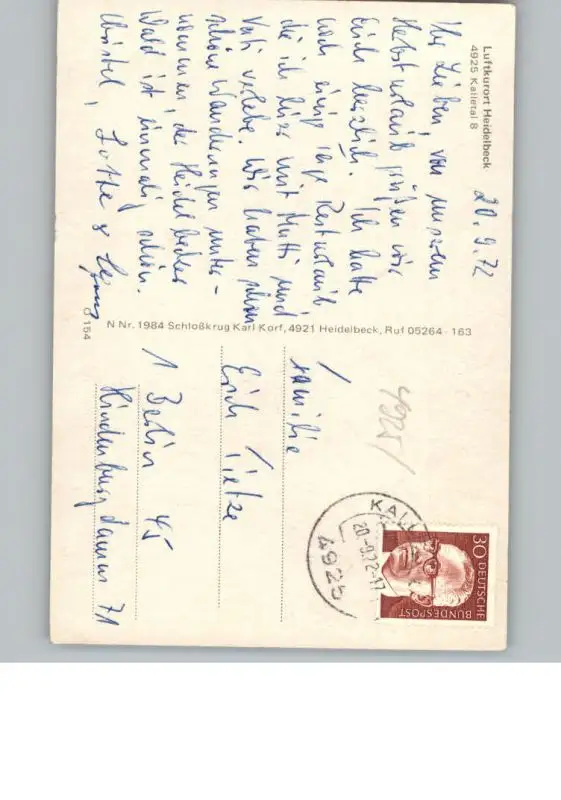 Luftkurort Heidelbeck
4925 Kalletal 8
20.9.72
Ihr Lieben, von unserem
Herbsturlaub grüßen wir
Euch herzlich. Ich hatte
noch einige Tage Resturlaub
die ich hier mit Mutti und
Vati verlebe. Wir haben schon
schöne Wanderungen unter-
nommen, der Heidelbecker
Wald ist einmalig schön.
Lotte &
O 154
N Nr. 1984 Schloßkrug Karl Korf, 4921 Heidelbeck, Ruf 05264 - 163
4925/
Familie
Erich Tietze
1 Berlin 45
Hindenburgdamm 71
20.-9.72-17
4925
30 DEUTSCHE
BUNDESPOST